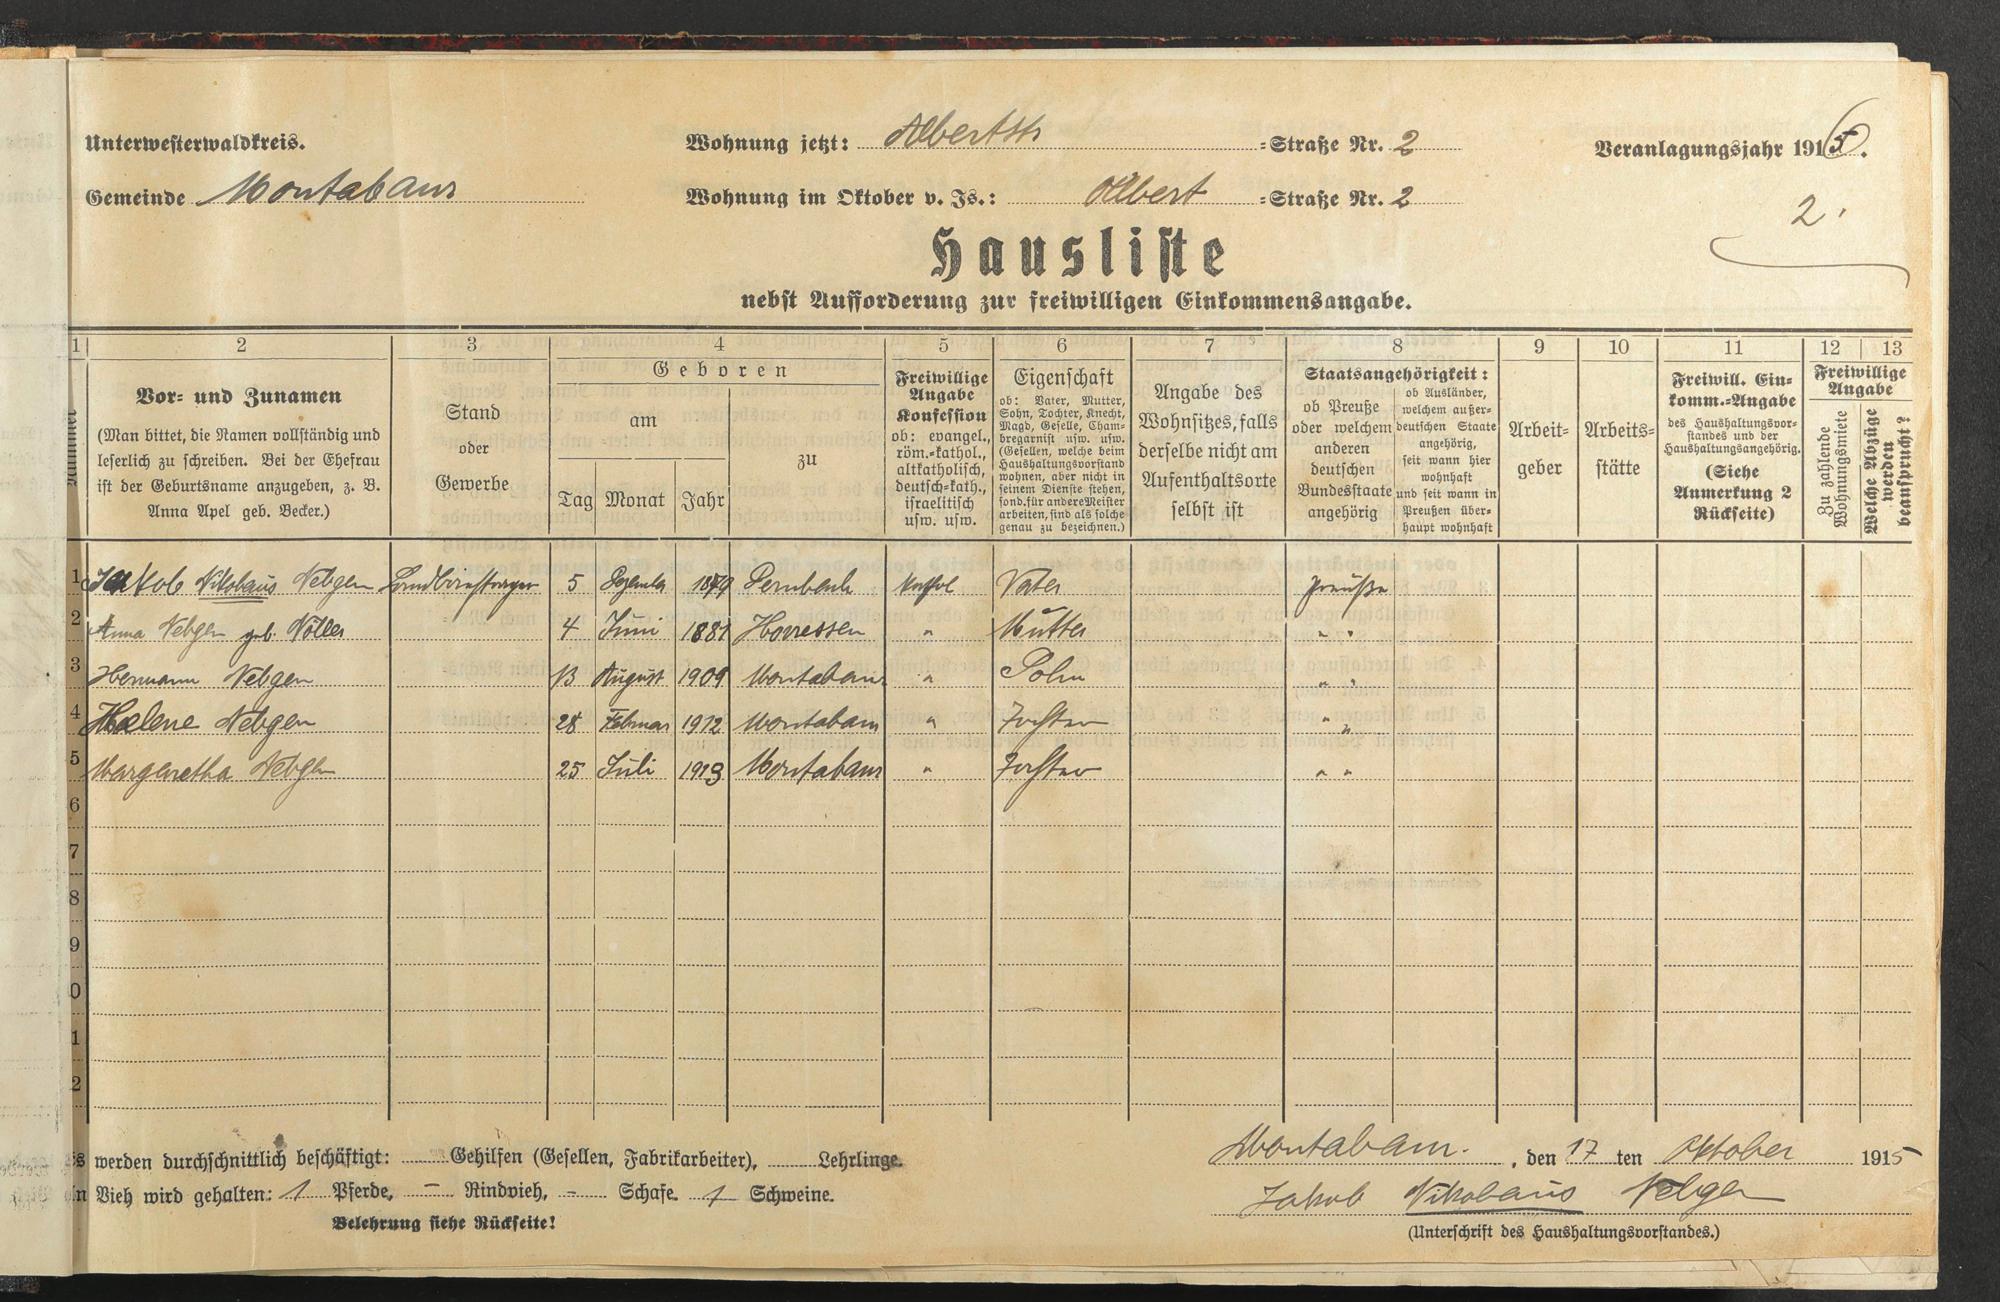 Unterwesterwaldkreis.
Wohnung jetzt: Albertstr -Straße Nr. 2
Veranlagungsjahr 1916.
Gemeinde Montabaur
Wohnung im Oktober v. Js.: Albert -Straße Nr. 2
2.
Hausliste
nebst Aufforderung zur freiwilligen Einkommensangabe.
1 2 3 4 5 6 7 8 9 10 11 12 13
Nummer
Vor- und Zunamen
(Man bittet, die Namen vollständig und
leserlich zu schreiben. Bei der Ehefrau
ist der Geburtsname anzugeben, z. B.
Anna Apel geb. Becker.)
Stand
oder
Gewerbe
Geboren
am
zu
Tag Monat Jahr
Freiwillige
Angabe
Konfession
ob: evangel.,
röm.-kathol.,
altkatholisch,
deutsch-kath.,
israelitisch
usw. usw.
Eigenschaft
ob: Vater, Mutter,
Sohn, Tochter, Knecht,
Magd, Geselle, Cham-
bregarnist usw. usw.
(Gesellen, welche beim
Haushaltungsvorstand
wohnen, aber nicht in
seinem Dienste stehen,
sond. für andere Meister
arbeiten, sind als solche
genau zu bezeichnen.)
Angabe des
Wohnsitzes, falls
derselbe nicht am
Aufenthaltsorte
selbst ist
Staatsangehörigkeit:
ob Preuße
oder welchem
anderen
deutschen
Bundesstaate
angehörig
ob Ausländer,
welchem außer-
deutschen Staate
angehörig,
seit wann hier
wohnhaft
und seit wann in
Preußen über-
haupt wohnhaft
Arbeit-
geber
Arbeits-
stätte
Freiwill. Ein-
komm.-Angabe
des Haushaltungsvor-
standes und der
Haushaltungsangehörig.
(Siehe
Anmerkung 2
Rückseite)
Freiwillige
Angabe
Zu zahlende
Wohnungsmiete
Welche Abzüge
werden
beansprucht?
1 Jakob Nikolaus Nebgen Landbriefträger 5 Dezember 1879 Kathol Vater Preuße
2 Anna Nebgen geb. Nöller 4 Juni 1881 Horressen " Mutter " "
3 Hermann Nebgen 13 August 1909 Montabaur " Sohn " "
4 Helene Nebgen 28 Februar 1912 Montabaur " Tochter " "
5 Margaretha Nebgen 25 Juli 1913 Montabaur " Tochter " "
6
7
8
9
0
1
2
werden durchschnittlich beschäftigt: Gehilfen (Gesellen, Fabrikarbeiter), Lehrlinge.
Vieh wird gehalten: 1 Pferde, – Rindvieh, – Schafe. 1 Schweine.
Belehrung siehe Rückseite!
Montabaur. , den 17 ten Oktober 1915
Jakob Nikolaus Nebgen
(Unterschrift des Haushaltungsvorstandes.)